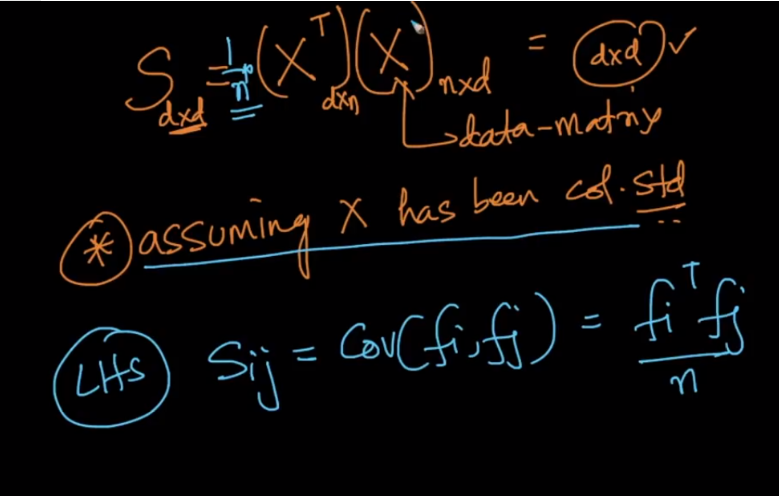 S_{dxd} = \frac{1}{n} (X^T)_{dxn} (X)_{nxd} = (dxd) ✓
→ data-matrix
* assuming X has been col. std
LHS S_{ij} = Cov(f_i, f_j) = \frac{f_i^T f_j}{n}